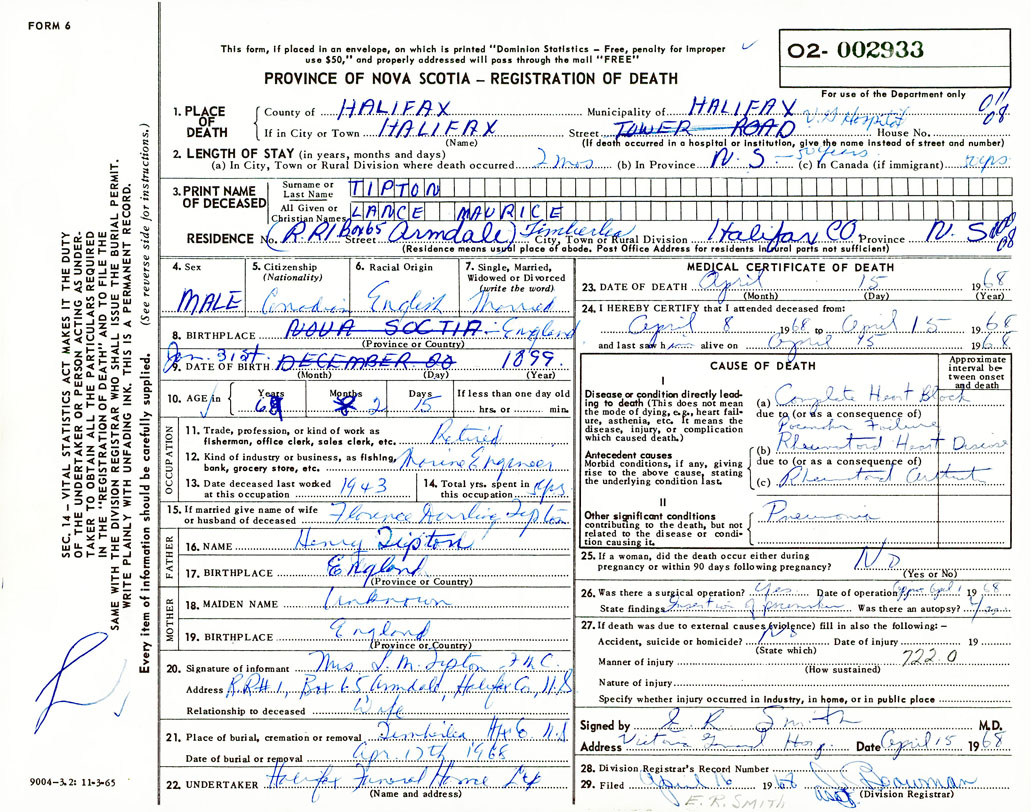 FORM 6
This form, if placed in an envelope, on which is printed "Dominion Statistics – Free, penalty for improper
use $50," and properly addressed will pass through the mail "FREE"
O2- 002933
PROVINCE OF NOVA SCOTIA – REGISTRATION OF DEATH
For use of the Department only
1. PLACE OF DEATH
County of HALIFAX Municipality of HALIFAX
If in City or Town HALIFAX Street TOWER ROAD V.G. Hospital House No.
(Name) (If death occurred in a hospital or institution, give the name instead of street and number)
2. LENGTH OF STAY (in years, months and days)
(a) In City, Town or Rural Division where death occurred 2 mos (b) In Province N. S – 50 years (c) In Canada (if immigrant) yrs
3. PRINT NAME OF DECEASED
Surname or Last Name TIPTON
All Given or Christian Names LANCE MAURICE
RESIDENCE No. (R.R1 Box 65 Street Armdale) Timberlea City, Town or Rural Division Halifax CO Province N. S
(Residence means usual place of abode. Post Office Address for residents in rural parts not sufficient)
4. Sex
MALE
5. Citizenship (Nationality)
Canadian
6. Racial Origin
English
7. Single, Married, Widowed or Divorced (write the word)
Married
8. BIRTHPLACE NOVA SOCTIA England
(Province or Country)
Jan. 31st.
9. DATE OF BIRTH DECEMBER 1899
(Month) (Day) (Year)
10. AGE in Years Months 2 Days 15 If less than one day old
hrs. or min.
OCCUPATION
11. Trade, profession, or kind of work as fisherman, office clerk, sales clerk, etc. Retired
12. Kind of industry or business, as fishing, bank, grocery store, etc. Marine Engineer
13. Date deceased last worked at this occupation 1943
14. Total yrs. spent in this occupation yrs
15. If married give name of wife or husband of deceased Florence Tipton
FATHER
16. NAME Henry Tipton
17. BIRTHPLACE England
(Province or Country)
MOTHER
18. MAIDEN NAME Unknown
19. BIRTHPLACE England
(Province or Country)
20. Signature of informant Mrs L. M. Tipton
Address R.R # 1, Box 65 Armdale, Halifax Co, N.S
Relationship to deceased Wife
21. Place of burial, cremation or removal Timberlea Hfx Co N.S
Date of burial or removal Apr. 17th 1968
22. UNDERTAKER Halifax Funeral Home
(Name and address)
MEDICAL CERTIFICATE OF DEATH
23. DATE OF DEATH April 15 1968
(Month) (Day) (Year)
24. I HEREBY CERTIFY that I attended deceased from:
April 8 1968 to April 15 1968
and last saw h alive on April 15 1968
CAUSE OF DEATH
Approximate interval between onset and death
I
Disease or condition directly leading to death (This does not mean the mode of dying, e.g., heart failure, asthenia, etc. It means the disease, injury, or complication which caused death.)
(a) Complete Heart Block
due to (or as a consequence of)
Pacemaker Failure
Antecedent causes
Morbid conditions, if any, giving rise to the above cause, stating the underlying condition last.
(b) Rheumatoid Heart Disease
due to (or as a consequence of)
(c) Rheumatoid
II
Other significant conditions
contributing to the death, but not related to the disease or condition causing it.
Pneumonia
25. If a woman, did the death occur either during
pregnancy or within 90 days following pregnancy? No
(Yes or No)
26. Was there a surgical operation? Yes Date of operation April 1968
State findings Insertion of pacemaker Was there an autopsy?
27. If death was due to external causes (violence) fill in also the following: –
Accident, suicide or homicide? No Date of injury 19
(State which)
Manner of injury 722.0
(How sustained)
Nature of injury
Specify whether injury occurred in industry, in home, or in public place
Signed by E. R. Smith M.D.
Address Victoria General Hosp. Date April 15 1968
28. Division Registrar's Record Number
29. Filed April 16 1968 Bowman
(Division Registrar)
E. R. SMITH
SEC. 14 – VITAL STATISTICS ACT MAKES IT THE DUTY
OF THE UNDERTAKER OR PERSON ACTING AS UNDER-
TAKER TO OBTAIN ALL THE PARTICULARS REQUIRED
IN THE "REGISTRATION OF DEATH" AND TO FILE THE
SAME WITH THE DIVISION REGISTRAR WHO SHALL ISSUE THE BURIAL PERMIT.
WRITE PLAINLY WITH UNFADING INK. THIS IS A PERMANENT RECORD.
Every item of information should be carefully supplied. (See reverse side for instructions.)
9004–3.2: 11-3-65